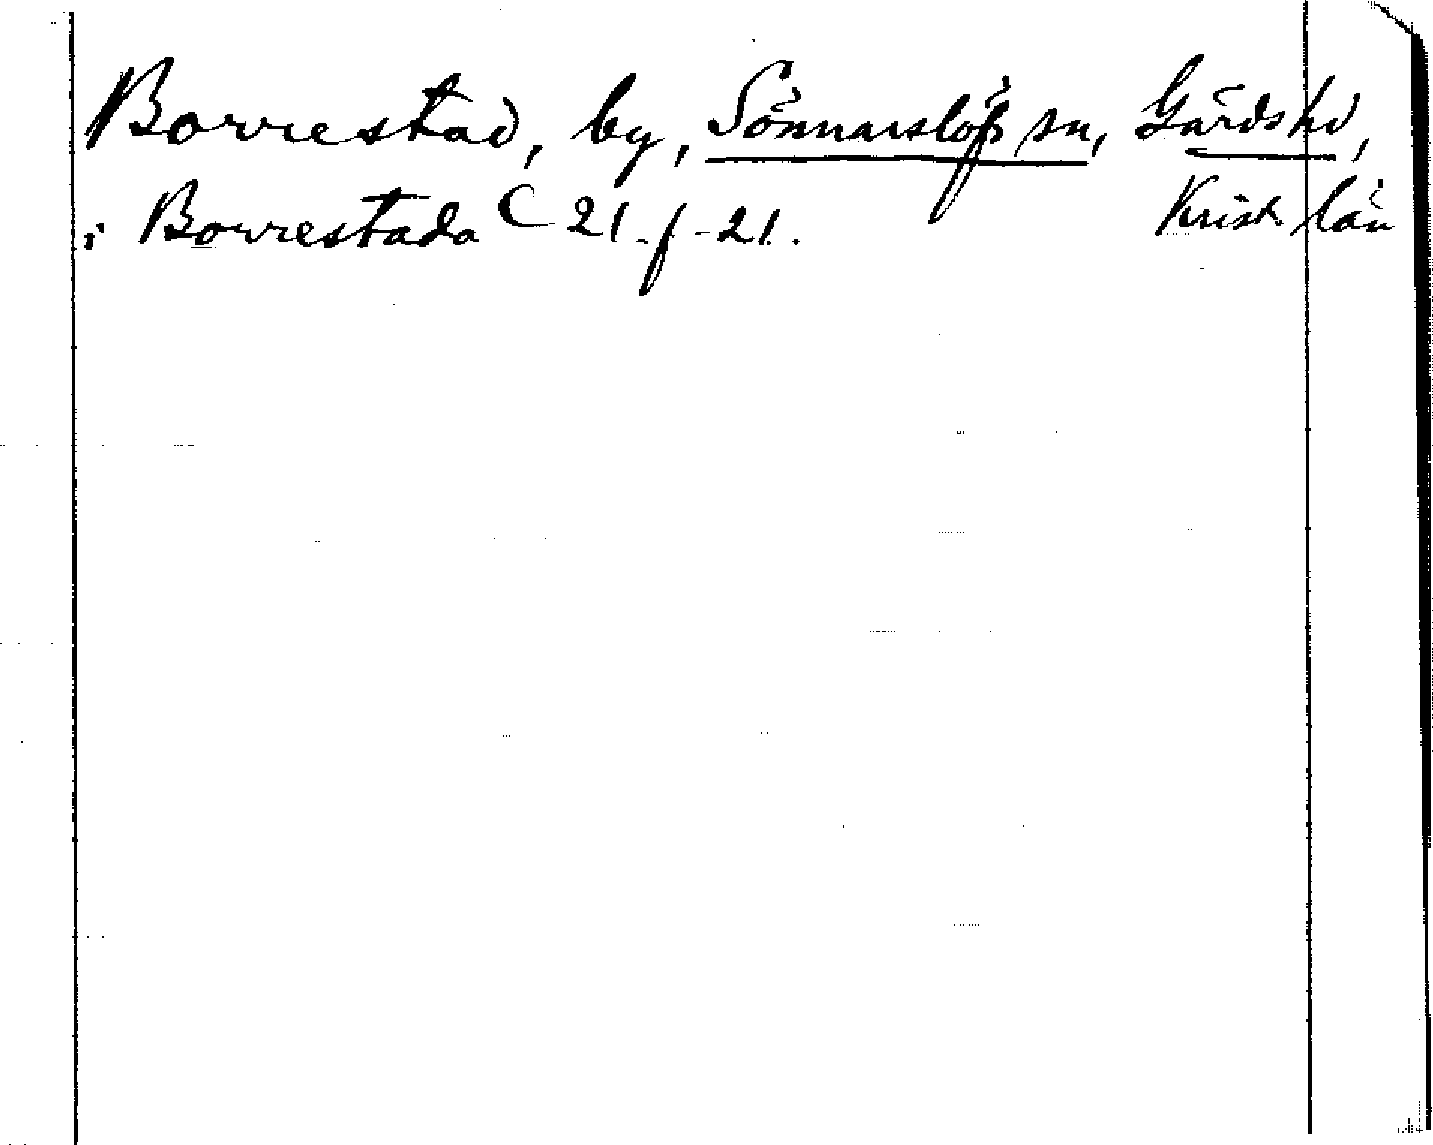 Borrestad, by, Sönnarslöfs sn, Gärds hd,
i Borrestada C 21 f. 21. Krist län